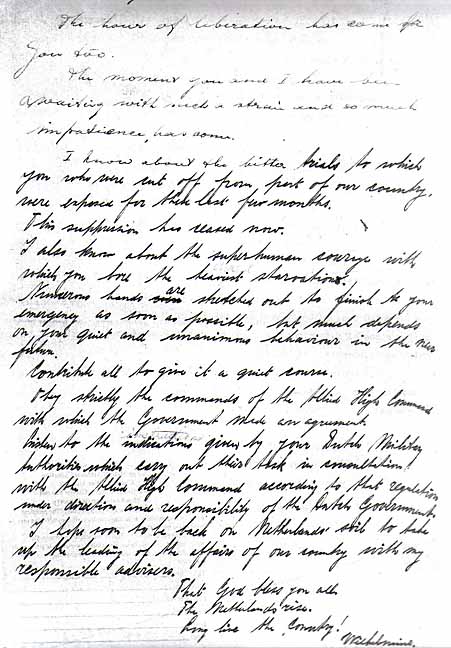 The hour of liberation has come for
you too.
The moment you and I have been
awaiting with such a strain and so much
impatience, has come.
I know about the bitter trials to which
you who were cut off from part of our country,
were exposed for these last few months.
This suppression has ceased now.
I also know about the superhuman courage with
which you bore the heaviest starvations.
Numerous hands are stretched out to finish to your
emergency as soon as possible, but much depends
on your quiet and unanimous behaviour in the near
future.
Contribute all to give it a quiet course.
Obey strictly the commands of the Allied High Command
with which the Government made an agreement.
Listen to the indications given by your Dutch Military
Authorities which carry out their task in consultation
with the Allied High Command according to that regulation
under direction and responsibility of the Dutch Government.
I hope soon to be back on Netherlands soil to take
up the leading of the affairs of our country with my
responsible advisers.
That God bless you all.
The Netherlands rise.
Long live the Country!
Wilhelmina.